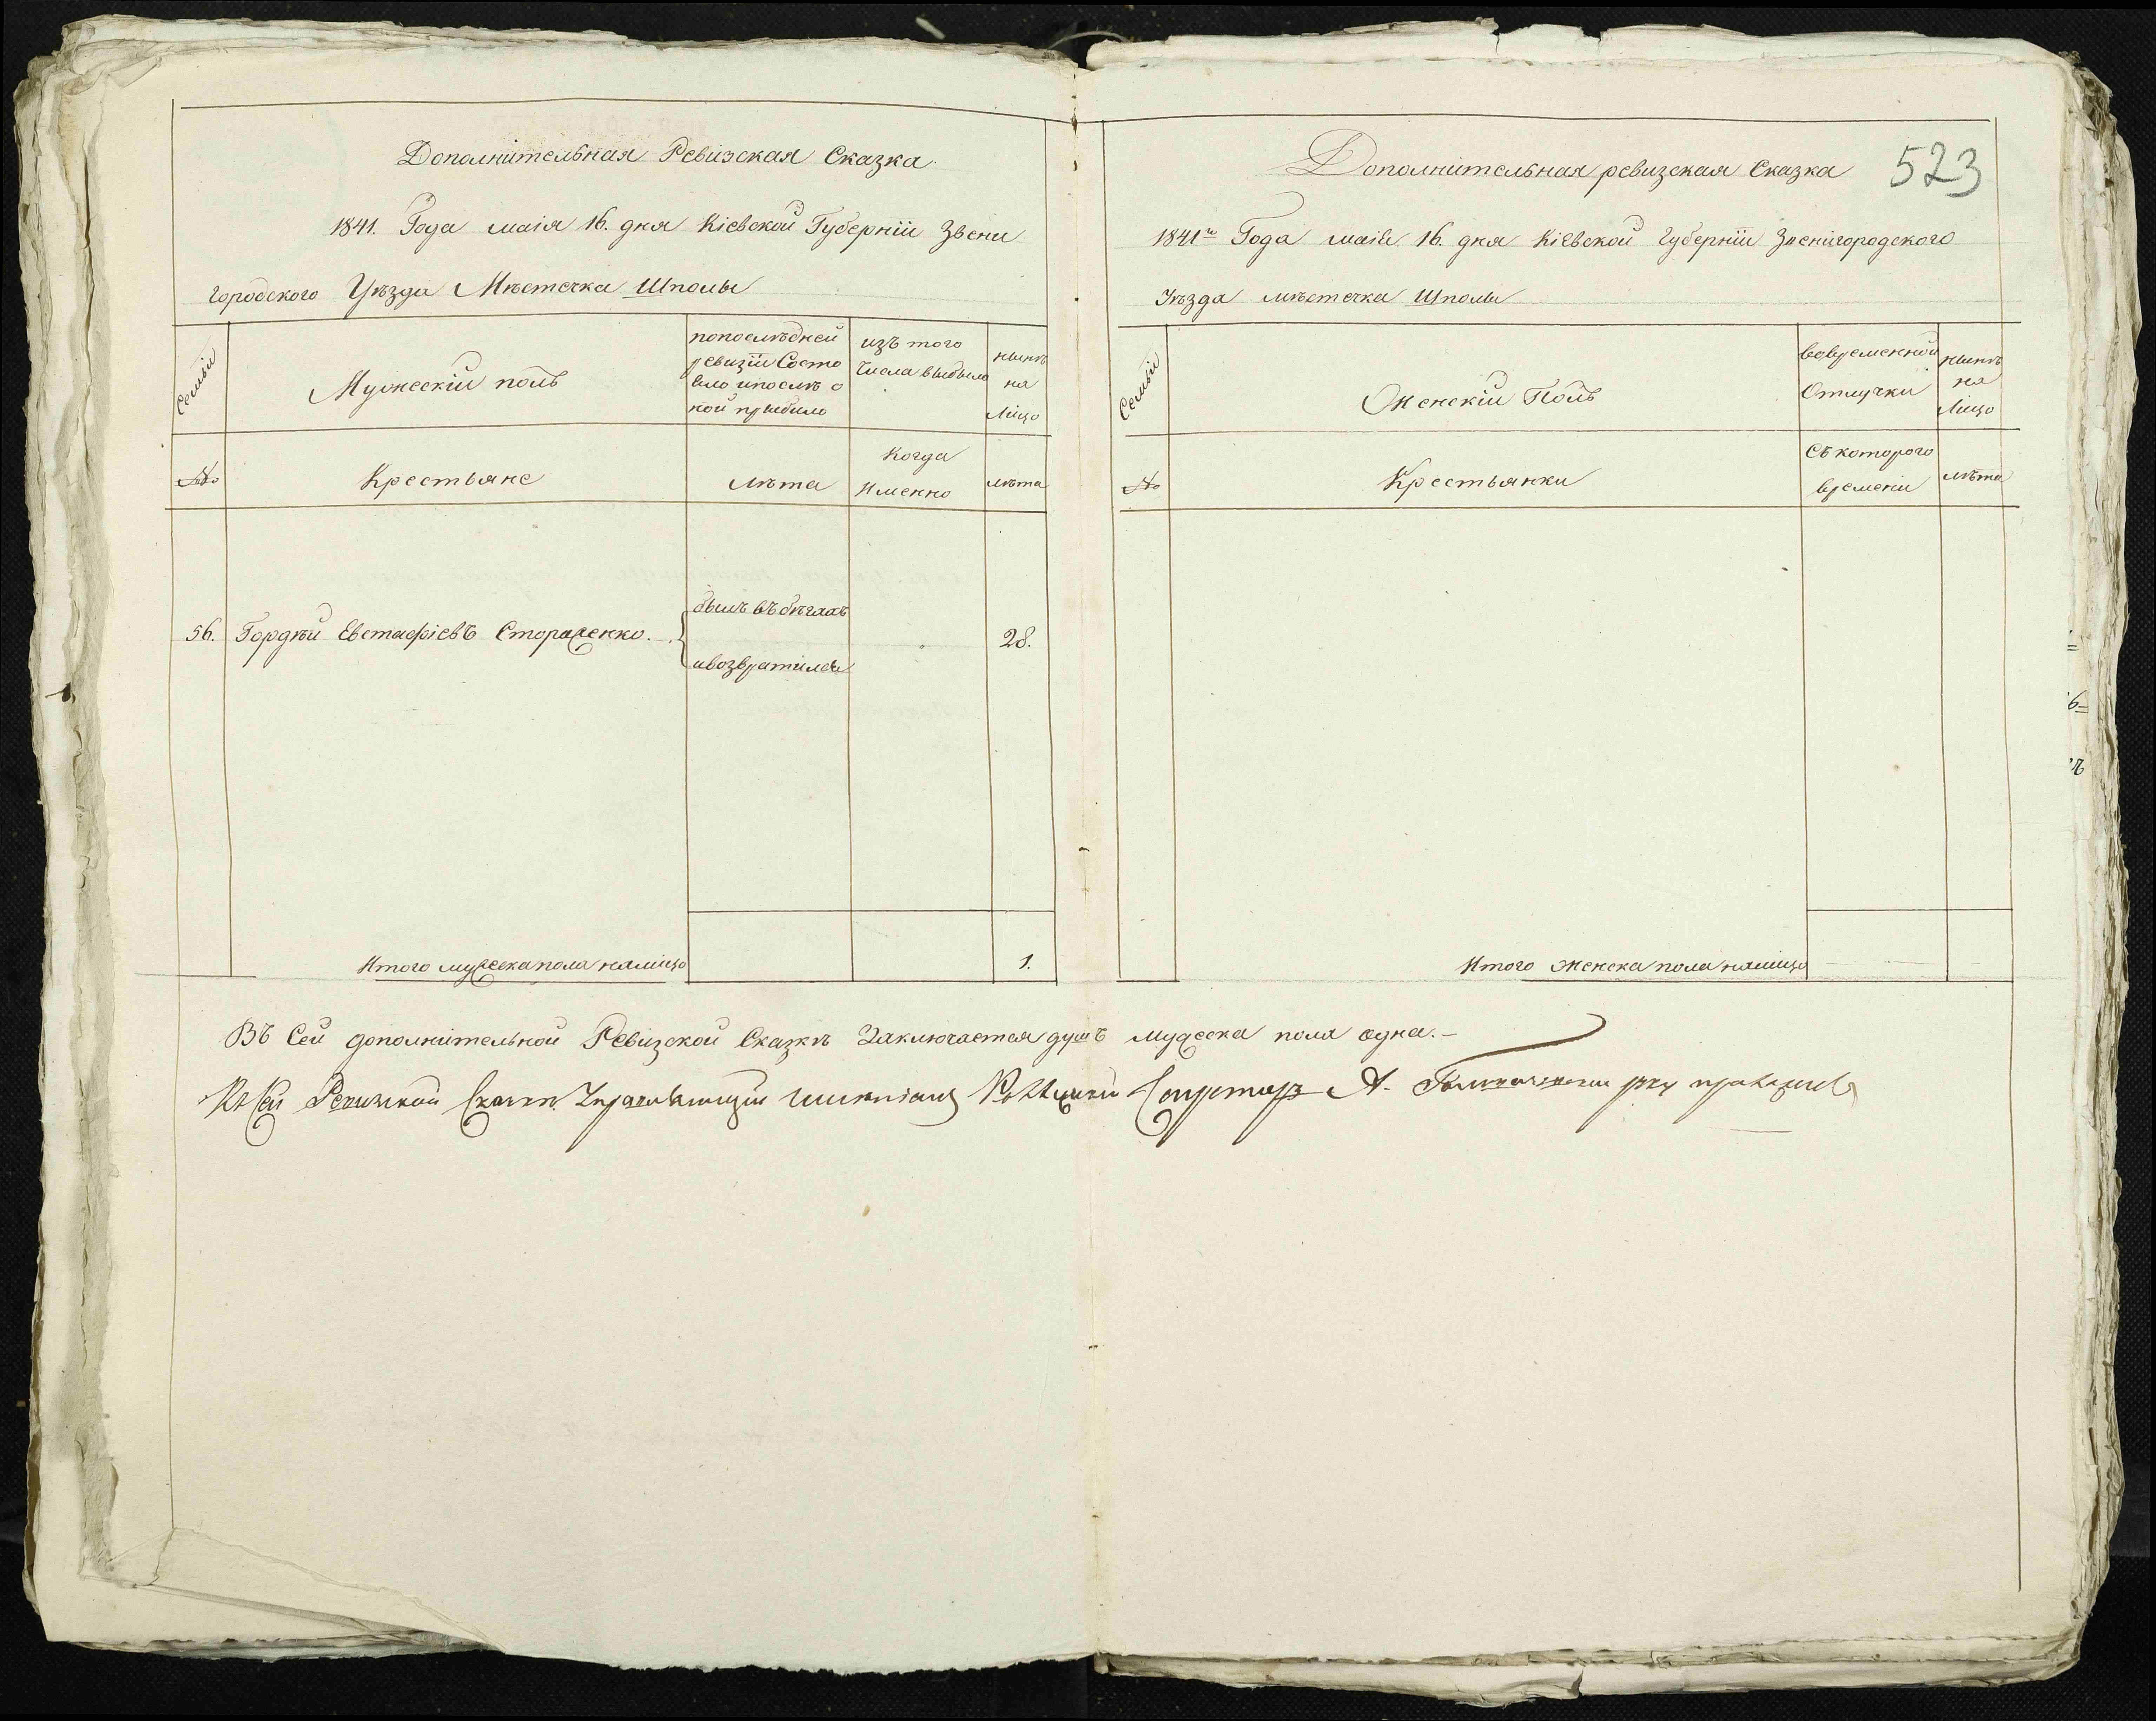 Дополнительная Ревизская Сказка
1841. Года маія 16. дня Кіевской Губерніи Звени
городского Уѣзда Мѣстечка Шполы
Семьи
Мужескій полъ
попослѣдней
ревизіи Состо
яло ипослѣ о
ной прибыло
изъ того
Числа выбыло
нынѣ
на
лицо
№
Крестьяне
лѣта
Когда
Именно
лѣта
56.
Гордѣй Евстафіевъ Стороженко.
былъ въ бѣгахъ
ивозвратился
28.
Итого мужеска пола налицо
1.
Дополнительная ревизская Сказка
523
1841го Года маія 16. дня Кіевской Губерніи Звенигородского
Уѣзда мѣстечка Шполы
Семьи
Женскій Полъ
вовременной
Отлучки
нынѣ
на
лицо
№
Крестьянки
Съ которого
времени
лѣта
Итого женска пола налицо
Въ Сей дополнительной Ревизской Сказкѣ Заключается душъ мужеска пола одна.—
Къ сей Ревизской Сказкѣ Управляющій имѣніемъ А. руку приложилъ